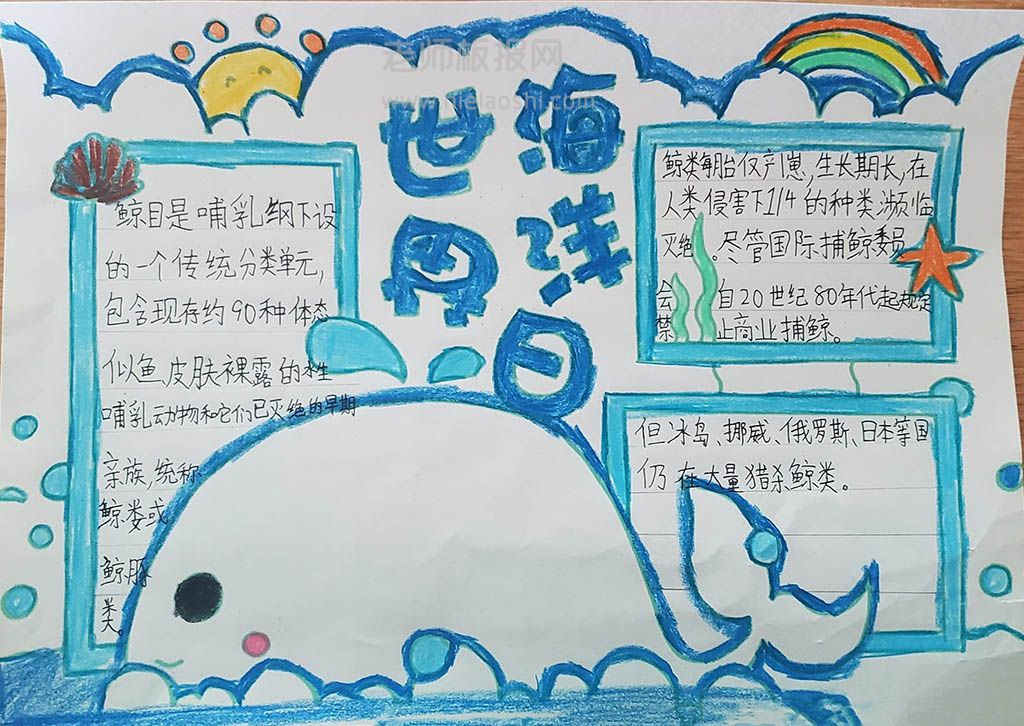 老师板报网
www.filelaoshi.com
世界
海洋日
鲸目是哺乳纲下设
的一个传统分类单元,
包含现存约90种体态
似鱼皮肤裸露的水生
哺乳动物和它们已灭绝的早期
亲族,统称
鲸类或
鲸豚
类。
鲸类每胎仅产1崽,生长期长,在
人类侵害下1/4的种类濒临
灭绝。尽管国际捕鲸委员
会自20世纪80年代起规定
禁止商业捕鲸。
但冰岛、挪威、俄罗斯、日本等国
仍在大量猎杀鲸类。